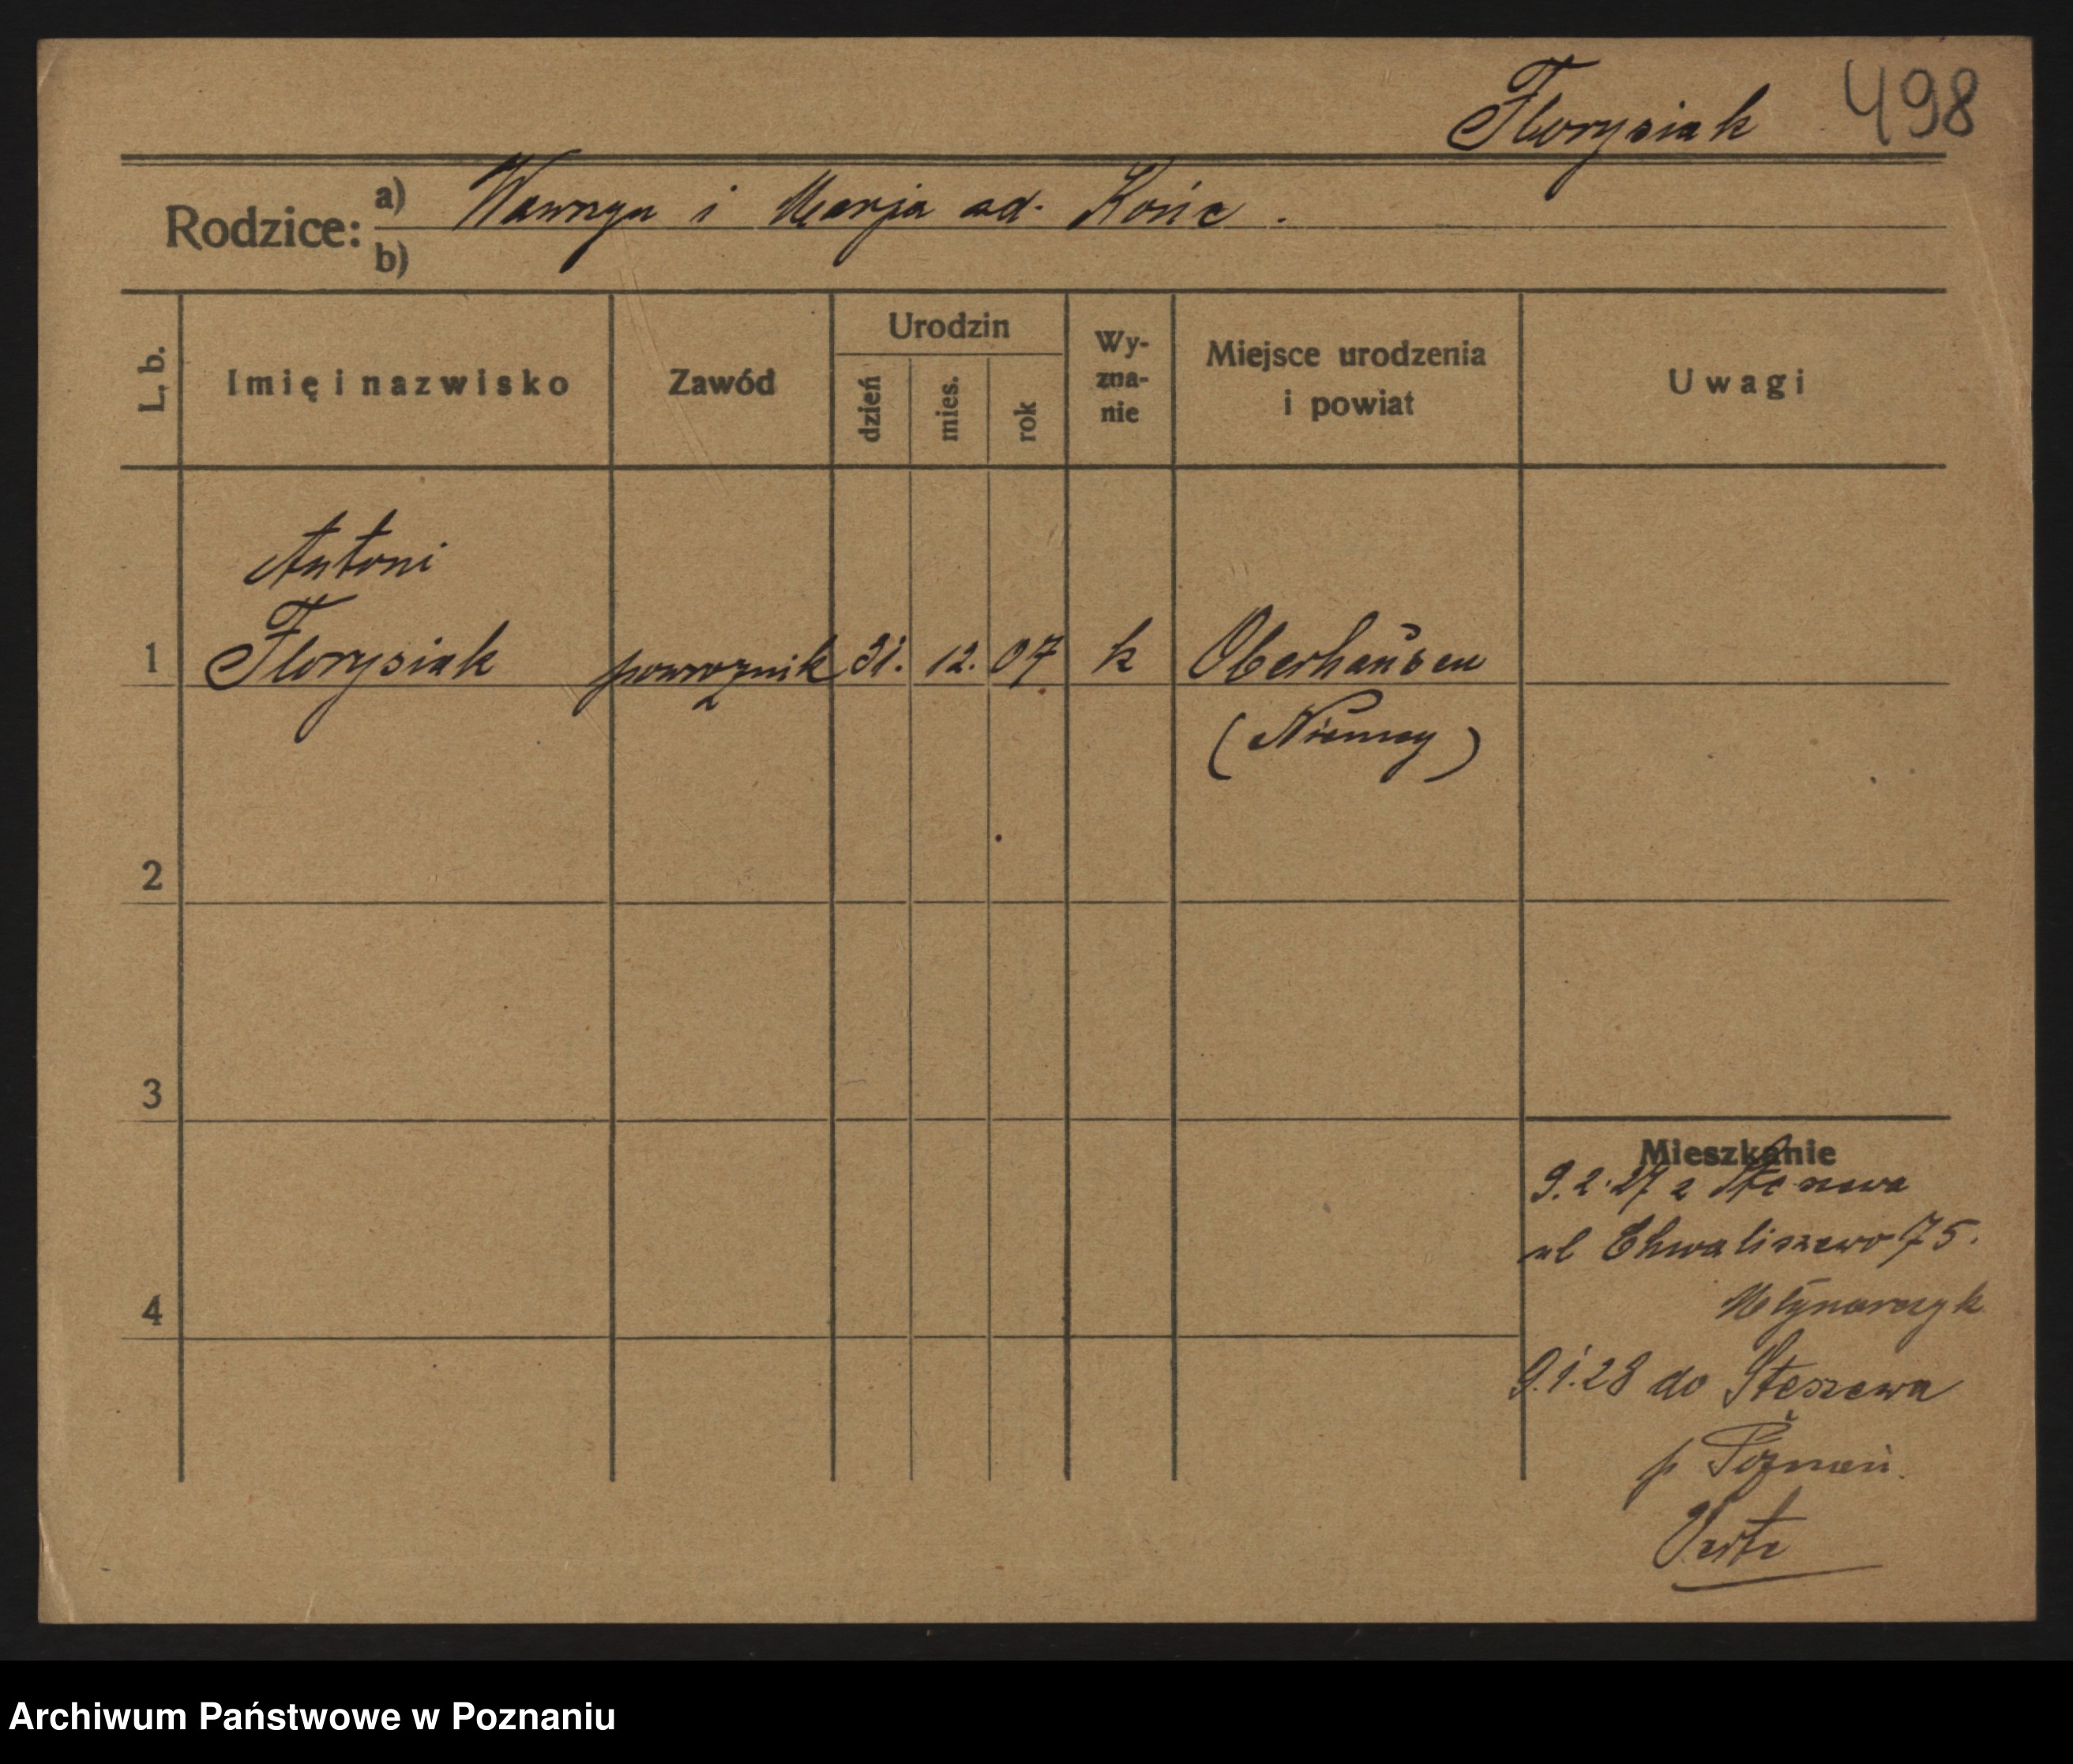 Florysiak 498
Rodzice: a) Wawrzyn i Marja od. Końc.
b)
L. b.
Imię i nazwisko
Zawód
Urodzin
dzień
mies.
rok
Wy-
zna-
nie
Miejsce urodzenia
i powiat
Uwagi
Antoni
1 Florysiak powroznik 31. 12. 07 k Oberhausen
(Niemcy)
2
3
4
Mieszkanie
9.2.27 z Stęszewa
ul Chwaliszewo 75.
Młynarczyk
9.1.28 do Stęszewa
p Poznań.
Archiwum Państwowe w Poznaniu